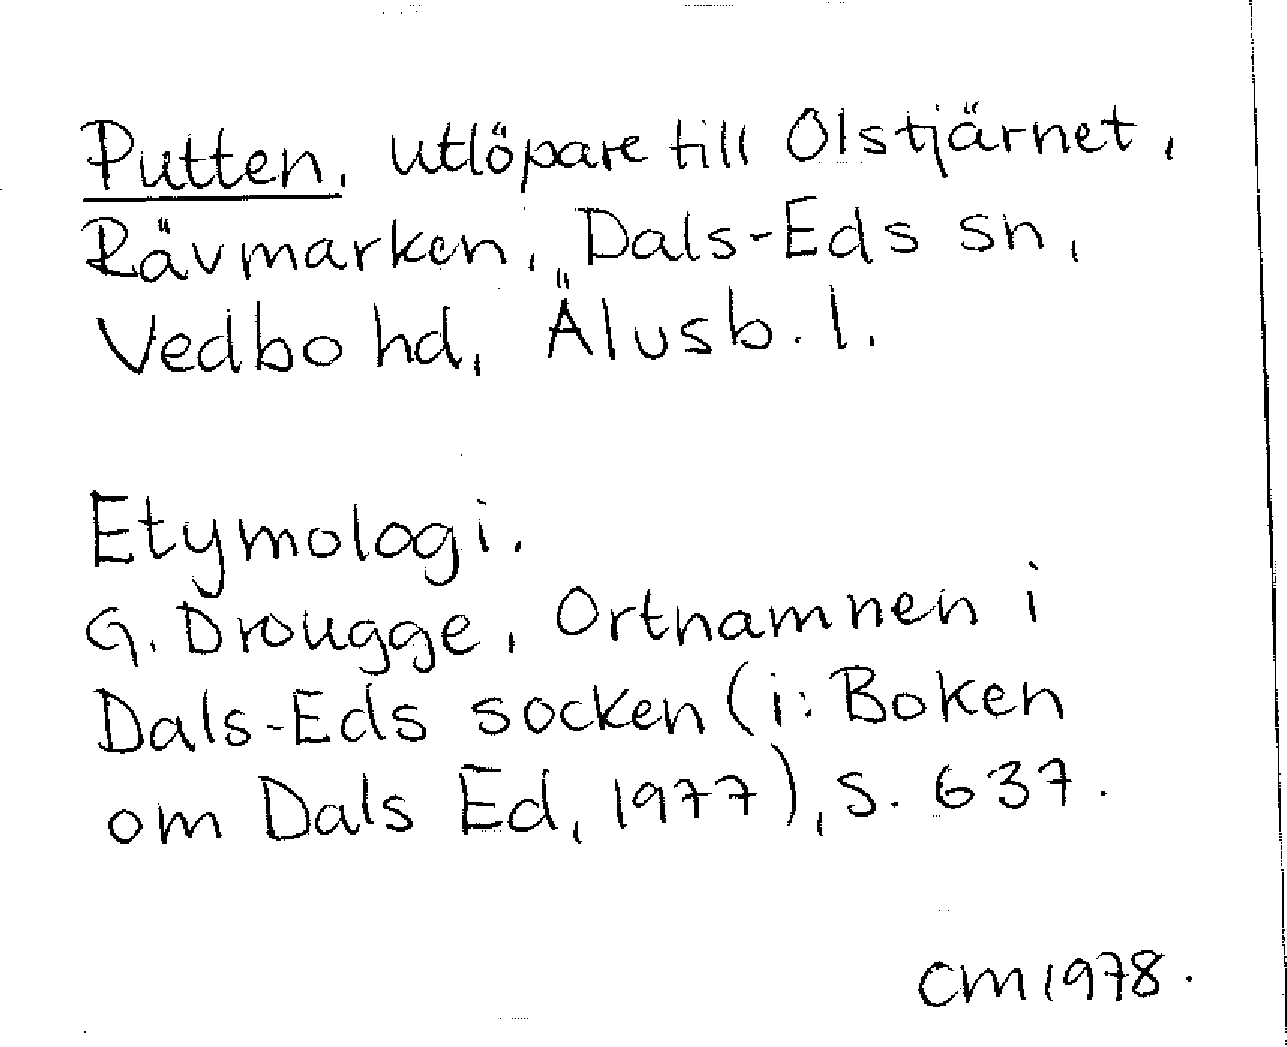 Putten, utlöpare till Olstjärnet,
Rävmarken, Dals-Eds sn,
Vedbo hd, Älvsb. l.
Etymologi.
G. Drougge, Ortnamnen i
Dals-Eds socken (i: Boken
om Dals Ed, 1977), s. 637.
CM 1978.